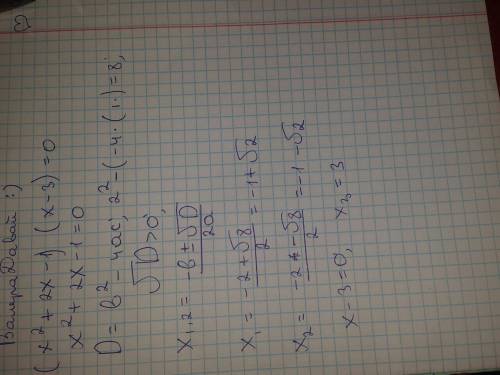 Валера Давай :)
(x² + 2x - 1) (x - 3) = 0
x² + 2x - 1 = 0
D = b² - 4ac; 2² - (-4 · (1·) = 8;
√D > 0;
x₁,₂ = -b ± √D / 2a
x₁ = -2 + √8 / 2 = -1 + √2
x₂ = -2 - √8 / 2 = -1 - √2
x - 3 = 0; x₃ = 3